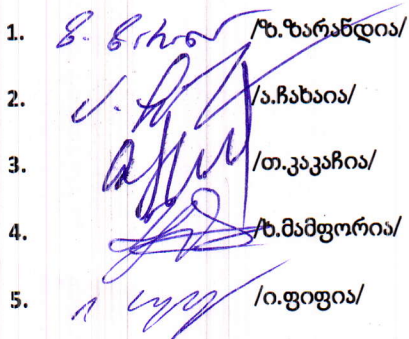 1. /ზ.ზარანდია/
2. /ა.ჩახაია/
3. /თ.კაკაჩია/
4. /ხ.მამფორია/
5. /ი.ფიფია/